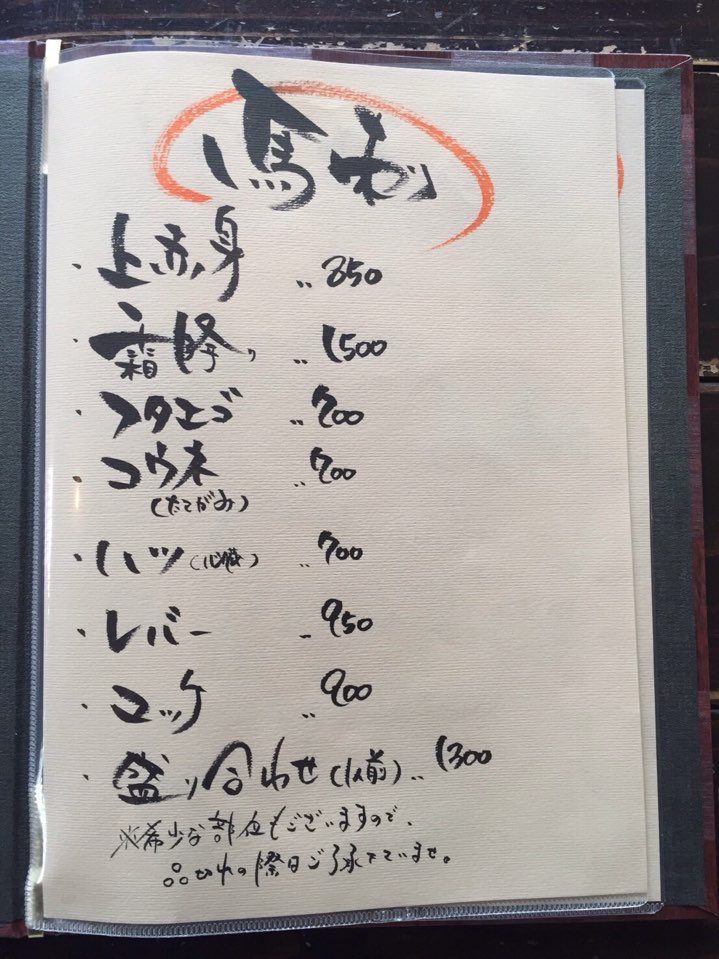 馬刺
・上赤身 ‥850
・霜降り ‥1500
・フタエゴ ‥700
・コウネ ‥700
(たてがみ)
・ハツ(心臓) ‥700
・レバー ‥950
・コッケ ‥900
・盛り合わせ(1人前)‥1300
※希少な部位もございますので、
品切れの際はご了承下さいませ。